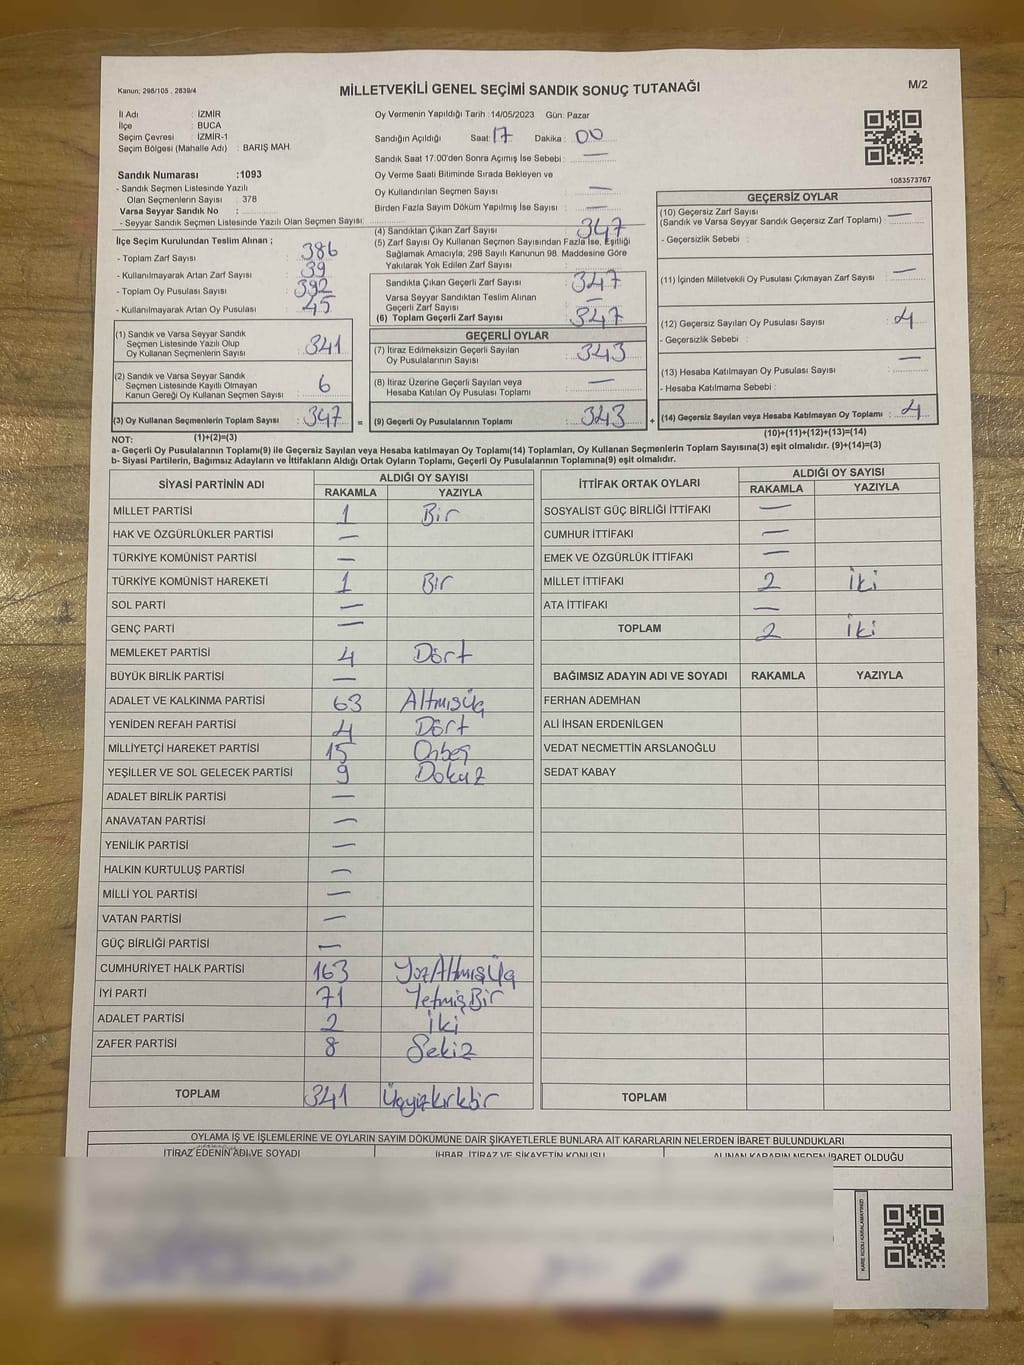 Kanun: 298/105 , 2839/4
MİLLETVEKİLİ GENEL SEÇİMİ SANDIK SONUÇ TUTANAĞI
M/2
İl Adı : İZMİR
İlçe : BUCA
Seçim Çevresi : İZMİR-1
Seçim Bölgesi (Mahalle Adı) : BARIŞ MAH.
Sandık Numarası :1093
- Sandık Seçmen Listesinde Yazılı
Olan Seçmenlerin Sayısı : 378
Varsa Seyyar Sandık No :
- Seyyar Sandık Seçmen Listesinde Yazılı Olan Seçmen Sayısı:
İlçe Seçim Kurulundan Teslim Alınan ;
- Toplam Zarf Sayısı : 386
- Kullanılmayarak Artan Zarf Sayısı : 39
- Toplam Oy Pusulası Sayısı : 392
- Kullanılmayarak Artan Oy Pusulası : 45
(1) Sandık ve Varsa Seyyar Sandık
Seçmen Listesinde Yazılı Olup
Oy Kullanan Seçmenlerin Sayısı : 341
(2) Sandık ve Varsa Seyyar Sandık
Seçmen Listesinde Kayıtlı Olmayan
Kanun Gereği Oy Kullanan Seçmen Sayısı : 6
(3) Oy Kullanan Seçmenlerin Toplam Sayısı : 347 =
Oy Vermenin Yapıldığı Tarih :14/05/2023 Gün: Pazar
Sandığın Açıldığı Saat: 17 Dakika : 00
Sandık Saat 17.00'den Sonra Açımış İse Sebebi : —
Oy Verme Saati Bitiminde Sırada Bekleyen ve
Oy Kullandırılan Seçmen Sayısı : —
Birden Fazla Sayım Döküm Yapılmış İse Sayısı : —
(4) Sandıktan Çıkan Zarf Sayısı : 347
(5) Zarf Sayısı Oy Kullanan Seçmen Sayısından Fazla İse, Eşitliği
Sağlamak Amacıyla, 298 Sayılı Kanunun 98. Maddesine Göre
Yakılarak Yok Edilen Zarf Sayısı :
Sandıkta Çıkan Geçerli Zarf Sayısı : 347
Varsa Seyyar Sandıktan Teslim Alınan
Geçerli Zarf Sayısı : —
(6) Toplam Geçerli Zarf Sayısı : 347
GEÇERLİ OYLAR
(7) İtiraz Edilmeksizin Geçerli Sayılan
Oy Pusulalarının Sayısı : 343
(8) İtiraz Üzerine Geçerli Sayılan veya
Hesaba Katılan Oy Pusulası Toplamı : —
(9) Geçerli Oy Pusulalarının Toplamı : 343 +
1083573767
GEÇERSİZ OYLAR
(10) Geçersiz Zarf Sayısı
(Sandık ve Varsa Seyyar Sandık Geçersiz Zarf Toplamı) : —
- Geçersizlik Sebebi :
(11) İçinden Milletvekili Oy Pusulası Çıkmayan Zarf Sayısı : —
(12) Geçersiz Sayılan Oy Pusulası Sayısı : 4
- Geçersizlik Sebebi :
(13) Hesaba Katılmayan Oy Pusulası Sayısı : —
- Hesaba Katılmama Sebebi :
(14) Geçersiz Sayılan veya Hesaba Katılmayan Oy Toplamı : 4
NOT: (1)+(2)=(3)
(10)+(11)+(12)+(13)=(14)
a- Geçerli Oy Pusulasının Toplamı(9) ile Geçersiz Sayılan veya Hesaba katılmayan Oy Toplam(14) Toplamları, Oy Kullanan Seçmenlerin Toplam Sayısına(3) eşit olmalıdır. (9)+(14)=(3)
b- Siyasi Partilerin, Bağımsız Adayların ve İttifakların Aldığı Ortak Oyların Toplamı, Geçerli Oy Pusulalarının Toplamına(9) eşit olmalıdır.
SİYASİ PARTİNİN ADI
ALDIĞI OY SAYISI
RAKAMLA YAZIYLA
MİLLET PARTİSİ 1 Bir
HAK VE ÖZGÜRLÜKLER PARTİSİ —
TÜRKİYE KOMÜNİST PARTİSİ —
TÜRKİYE KOMÜNİST HAREKETİ 1 Bir
SOL PARTİ —
GENÇ PARTİ —
MEMLEKET PARTİSİ 4 Dört
BÜYÜK BİRLİK PARTİSİ —
ADALET VE KALKINMA PARTİSİ 63 Altmışüç
YENİDEN REFAH PARTİSİ 4 Dört
MİLLİYETÇİ HAREKET PARTİSİ 15 Onbeş
YEŞİLLER VE SOL GELECEK PARTİSİ 9 Dokuz
ADALET BİRLİK PARTİSİ —
ANAVATAN PARTİSİ —
YENİLİK PARTİSİ —
HALKIN KURTULUŞ PARTİSİ —
MİLLİ YOL PARTİSİ —
VATAN PARTİSİ —
GÜÇ BİRLİĞİ PARTİSİ —
CUMHURİYET HALK PARTİSİ 163 YüzAltmışÜç
İYİ PARTİ 71 YetmişBir
ADALET PARTİSİ 2 İki
ZAFER PARTİSİ 8 Sekiz
TOPLAM 341 Üçyüzkırkbir
İTTİFAK ORTAK OYLARI
ALDIĞI OY SAYISI
RAKAMLA YAZIYLA
SOSYALİST GÜÇ BİRLİĞİ İTTİFAKI —
CUMHUR İTTİFAKI —
EMEK VE ÖZGÜRLÜK İTTİFAKI —
MİLLET İTTİFAKI 2 İki
ATA İTTİFAKI —
TOPLAM 2 İki
BAĞIMSIZ ADAYIN ADI VE SOYADI RAKAMLA YAZIYLA
FERHAN ADEMHAN
ALİ İHSAN ERDENİLGEN
VEDAT NECMETTİN ARSLANOĞLU
SEDAT KABAY
TOPLAM
OYLAMA İŞ VE İŞLEMLERİNE VE OYLARIN SAYIM DÖKÜMÜNE DAİR ŞİKAYETLERLE BUNLARA AİT KARARLARIN NELERDEN İBARET BULUNDUKLARI
İTİRAZ EDENİN ADI VE SOYADI İHBAR, İTİRAZ VE ŞİKAYETİN KONUSU ALINAN KARARIN NEDEN İBARET OLDUĞU
KARE KODU KARALAMAYINIZ!